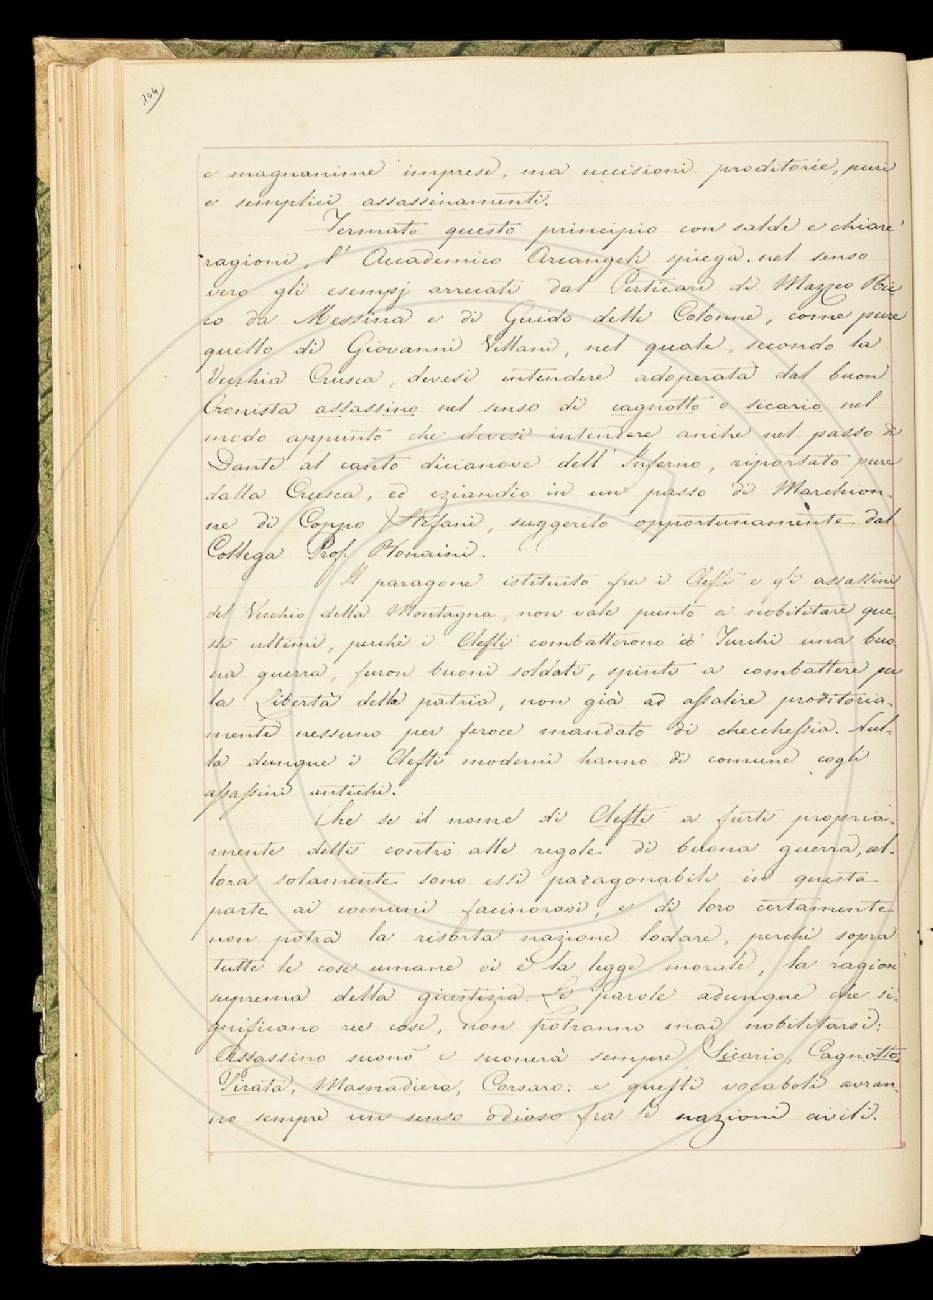 104
e magnanime imprese, ma uccisioni proditorie, puri
e semplici assassinamenti.
Fermato questo principio con salde e chiare
ragioni, l' Accademico Arcangeli spiega nel senso
vero gli esempj arrecati dal Perticari di Mazzeo Ric-
co da Messina e di Guido delle Colonne, come pure
quello di Giovanni Villani, nel quale, secondo la
Vecchia Crusca, devesi intendere adoperata dal buon
Cronista assassino nel senso di cagnotto o sicario nel
modo appunto che devesi intendere anche nel passo di
Dante al canto dicianove dell' Inferno, riportato pure
dalla Crusca, ed eziandio in un passo di Marchion-
ne di Coppo Stefani, suggerito opportunamente dal
Collega Prof. Bonaini.
Il paragone istituito fra i Clefti e gli assassini
del Vecchio della Montagna, non vale punto a nobilitare que-
sti ultimi, perchè i Clefti combatterono co' Turchi una buo-
na guerra, furon buoni soldati, spinti a combattere per
la Libertà della patria, non già ad assalire proditoria-
mente nessuno per feroce mandato di checchessia. Nul-
la dunque i Clefti moderni hanno di comune cogli
assassini antichi.
Che se il nome di Clefti a furti propria-
mente detti contro alle regole di buona guerra, al-
lora solamente sono essi paragonabili in questa
parte ai comuni facinorosi, e di loro certamente
non potrà la risorta nazione lodare, perchè sopra
tutte le cose umane vi è la legge morale, la ragion
suprema della giustizia. Le parole adunque che si-
gnificano ree cose, non potranno mai nobilitarsi:
Assassino suonò e suonerà sempre Sicario, Cagnotto,
Pirata, Masnadiero, Corsaro: e questi vocaboli avran-
no sempre un senso odioso fra le nazioni civili.